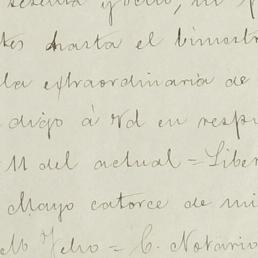 sesenta y ocho, mi
tes hasta el bimestr
la extraordinaria de
digo á Vd en resp
11 del actual = Liber
Mayo catorce de mi
ocho = C. Notario